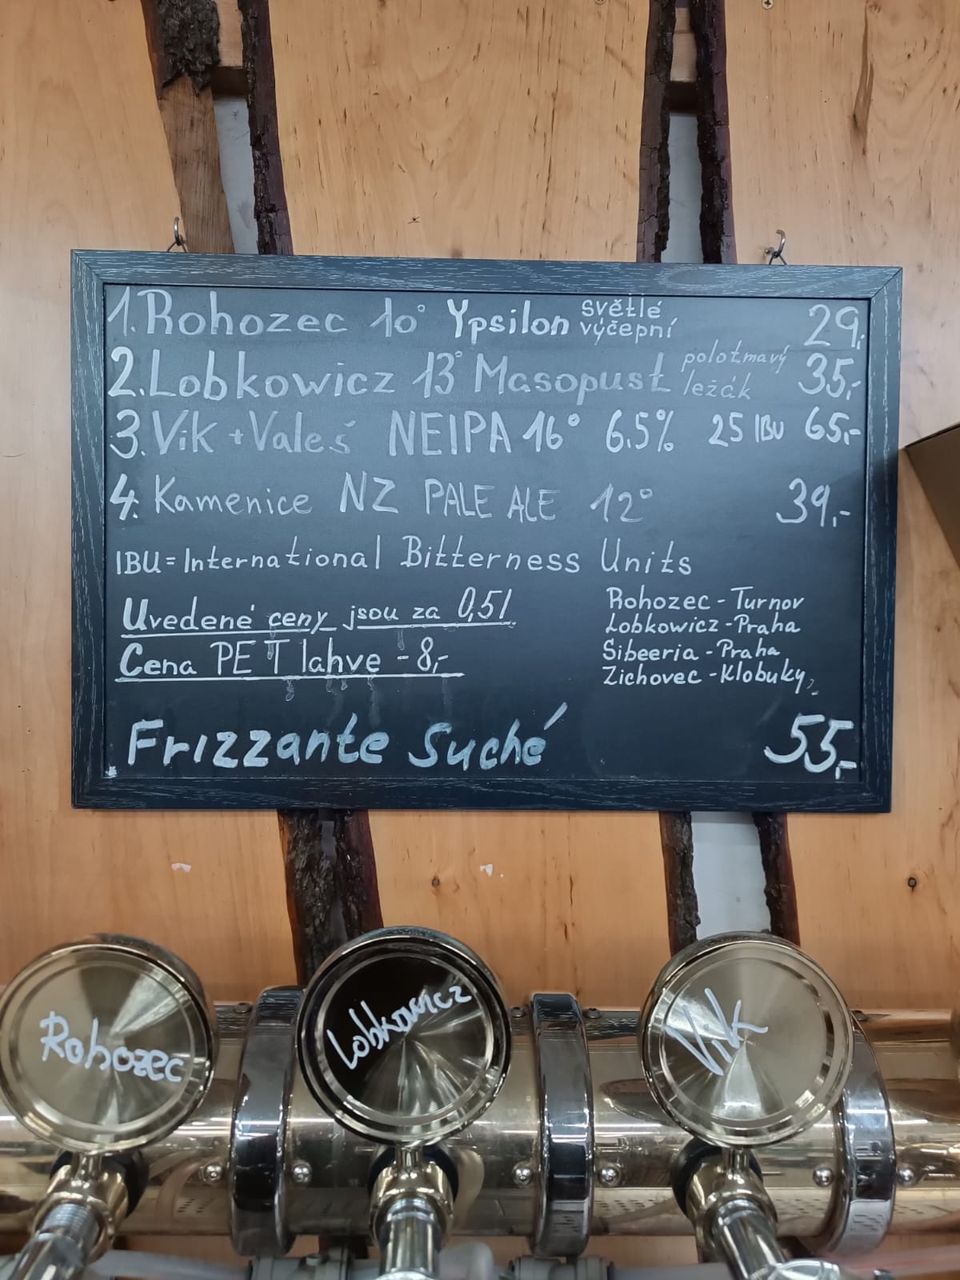 1. Rohozec 10° Ypsilon světlé výčepní 29,-
2. Lobkowicz 13° Masopust polotmavý ležák 35,-
3. Vik + Valeš NEIPA 16° 6.5% 25 IBU 65,-
4. Kamenice NZ PALE ALE 12° 39,-
IBU = International Bitterness Units
Uvedené ceny jsou za 0,5l
Cena PET lahve - 8,-
Rohozec - Turnov
Lobkowicz - Praha
Sibeeria - Praha
Zichovec - Klobuky
Frizzante Suché 55,-
Rohozec
Lobkowicz
Vik